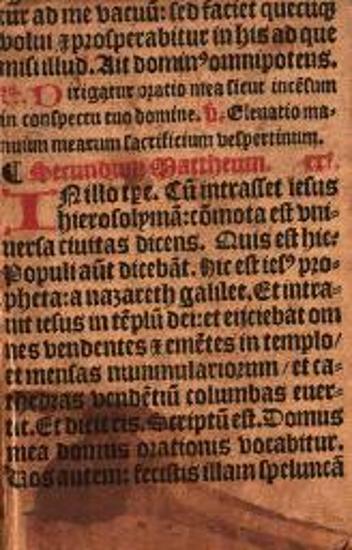 tur ad me vacuū: sed faciet quecūqȝ
volui ⁊ prosperabitur in his ad que
misi illud. Ait dominꝰ omnipotens.
Dirigatur oratio mea sicut incēsum
in conspectu tuo domine. ℣. Eleuatio ma-
nuum mearum sacrificium vespertinum.
¶ Secundum Mattheum. xxi.
IN illo tꝑe. Cū intrasset iesus
hierosolymā: cōmota est vni-
uersa ciuitas dicens. Quis est hic?
Populi aūt dicebāt. Hic est iesꝰ pro-
pheta: a nazareth galilee. Et intra-
uit iesus in tēplū dei: et eijciebāt om
nes vendentes ⁊ emētes in templo/
et mensas nummulariorum/ et ca-
thedras vendētiū columbas euer-
tit. Et dicit eis. Scriptū est. Domus
mea domus orationis vocabitur.
Uos autem: fecistis illam speluncā